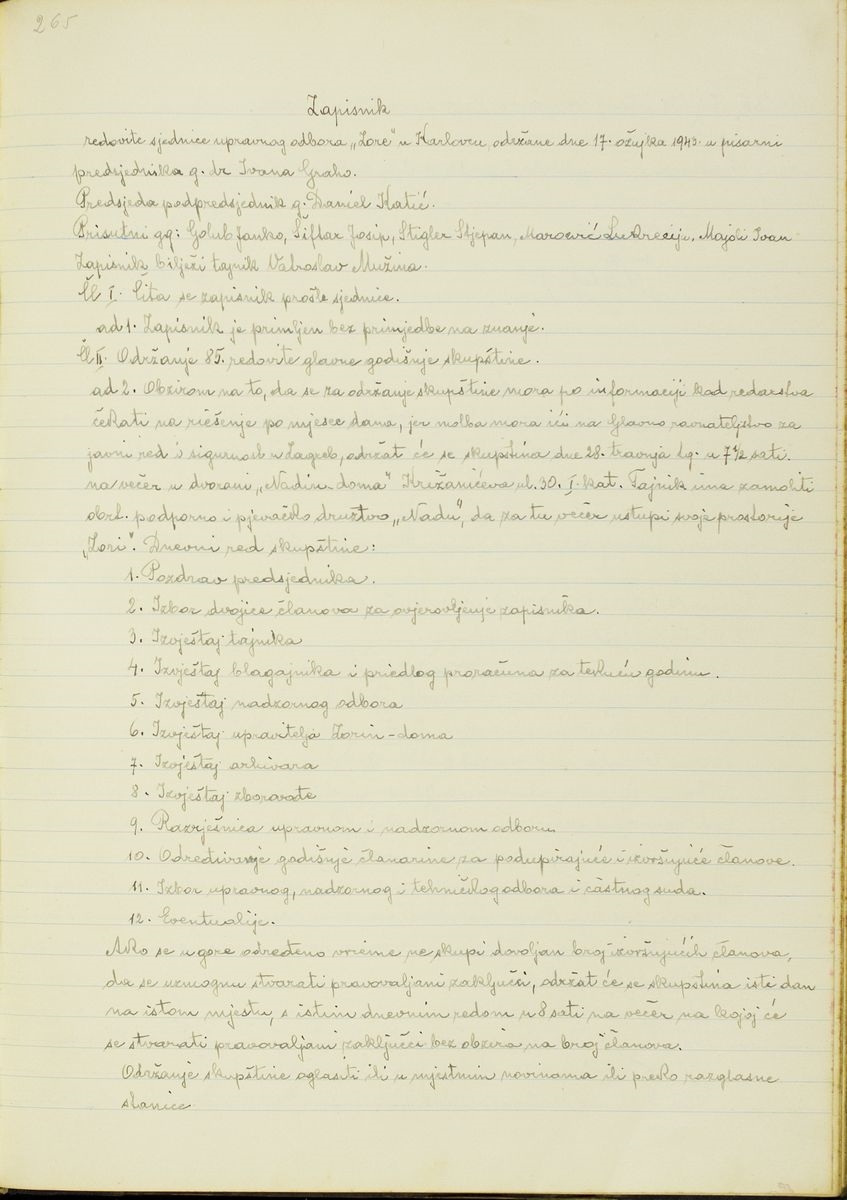 265
Zapisnik
redovite sjednice upravnog odbora „Zore" u Karlovcu održane dne 17. ožujka 1943. u pisarni
predsjednika g. dr. Ivana Graho.
Predsjeda podpredsjednik g. Daniel Katić.
Prisutni gg: Golub Janko, Šiftar Josip, Stigler Stjepan, Marović Lukrecija, Majoli Ivan
Zapisnik bilježi tajnik Vatroslav Mužina.
Čl I. Čita se zapisnik prošle sjednice.
ad 1. Zapisnik je primljen bez primjedbe na znanje.
Čl II. Održanje 85. redovite glavne godišnje skupštine.
ad 2. Obzirom na to, da se za održanje skupštine mora po informaciji kod redarstva
čekati na riešenje po mjesec dana, jer molba mora ići na Glavno ravnateljstvo za
javni red i sigurnost u Zagreb, održat će se skupština dne 28. travnja tg. u 7 1/2 sati
na večer u dvorani „Nadin-doma" Križanićeva ul. 30. I. kat. Tajnik ima zamoliti
obrt. podporno i pjevačko družtvo „Nadu", da za tu večer ustupi svoje prostorije
„Zori". Dnevni red skupštine:
1. Pozdrav predsjednika.
2. Izbor dvojice članova za ovjerovljenje zapisnika.
3. Izvještaj tajnika
4. Izvještaj blagajnika i priedlog proračuna za tekuću godinu.
5. Izvještaj nadzornog odbora
6. Izvještaj upravitelja Zorin-doma
7. Izvještaj arhivara
8. Izvještaj zborovođe
9. Razrješnica upravnom i nadzornom odboru
10. Određivanje godišnje članarine za podupirajuće i izvršujuće članove.
11. Izbor upravnog, nadzornog i tehničkog odbora i častnog suda.
12. Eventualije.
Ako se u gore određeno vrieme ne skupi dovoljan broj izvršujućih članova,
da se uzmognu stvarati pravovaljani zaključci, održat će se skupština isti dan
na istom mjestu, s istim dnevnim redom u 8 sati na večer na kojoj će
se stvarati pravovaljani zaključci bez obzira na broj članova.
Održanje skupštine oglasiti ili u mjestnim novinama ili preko razglasne
stanice